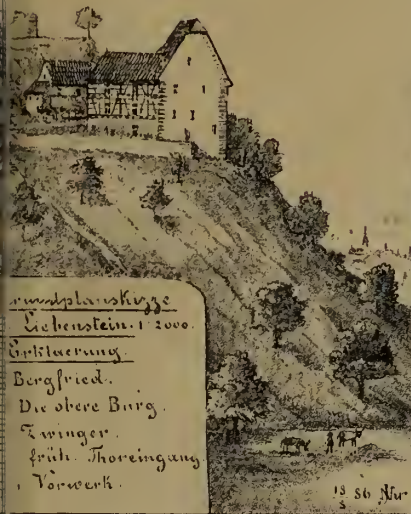 rundplanskizze
Liebenstein. 1:2000.
Erklaerung.
Bergfried.
Die obere Burg.
Zwinger.
früh. Thoreingang
Vorwerk.
18 86
5